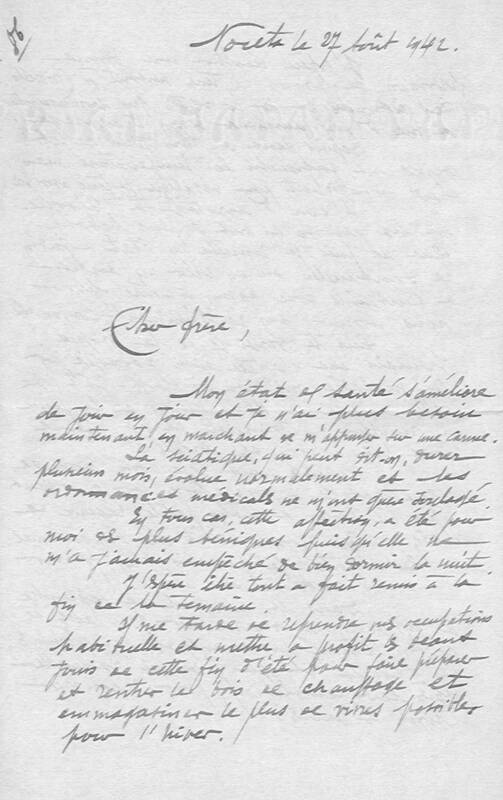 86
Noceta le 27 Août 1942.
Cher frère,
Mon état de santé s'améliore
de jour en jour et je n'ai plus besoin
maintenant, en marchant de m'appuyer sur une canne.
La sciatique, qui peut dit-on, durer
plusieurs mois, évolue normalement et les
ordonnances médicales ne m'ont guère soulagé.
En tous cas, cette affection, a été pour
moi des plus bénignes puisqu'elle ne
m'a jamais empêché de bien dormir la nuit.
J'espère être tout à fait remis à la
fin de la semaine.
Il me tarde de reprendre mes occupations
habituelle et mettre à profit les beaux
jours de cette fin d'été pour faire préparer
et rentrer le bois de chauffage et
emmagasiner le plus de vivres possibles
pour l'hiver.